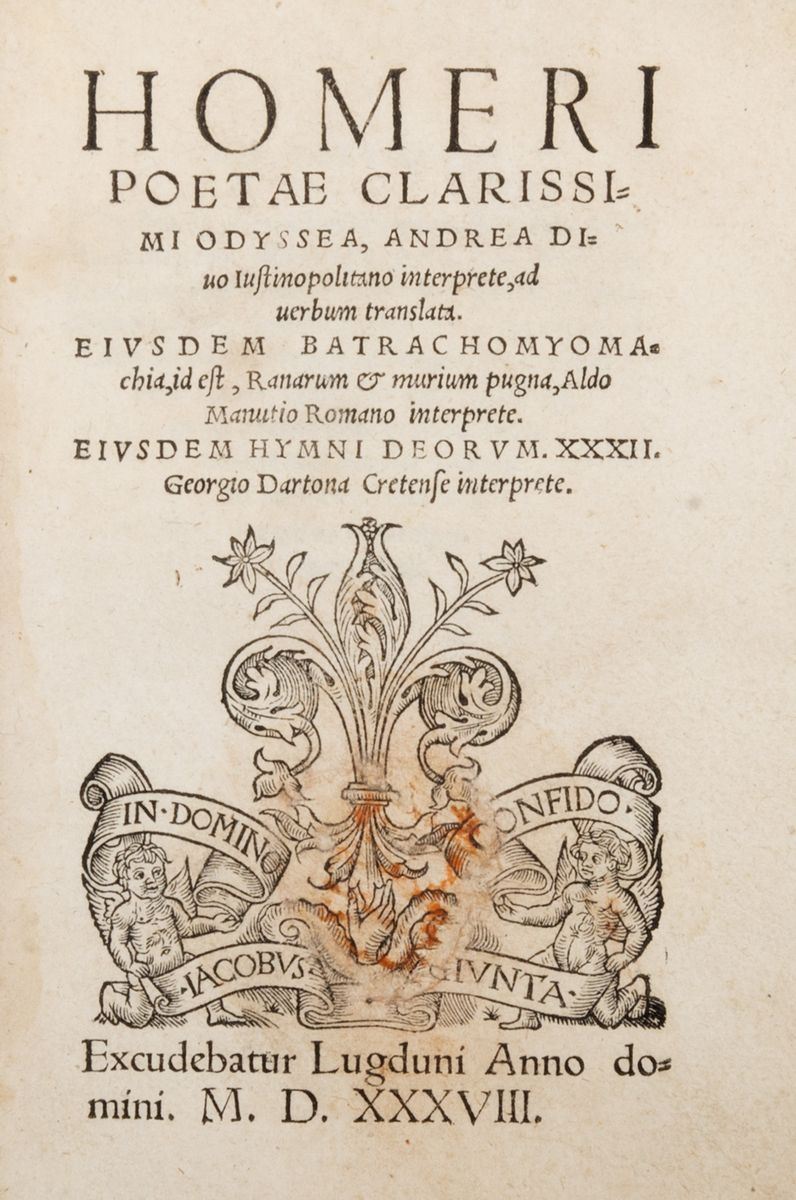 HOMERI
POETAE CLARISSI=
MI ODYSSEA, ANDREA DI=
uo Iuſtinopolitano interprete, ad
uerbum translata.
EIVSDEM BATRACHOMYOMA=
chia, id eſt, Ranarum & murium pugna, Aldo
Manutio Romano interprete.
EIVSDEM HYMNI DEORVM. XXXII.
Georgio Dartona Cretenſe interprete.
IN·DOMINO
ONFIDO·
·IACOBVS·
GIVNTA·
Excudebatur Lugduni Anno do=
mini. M. D. XXXVIII.